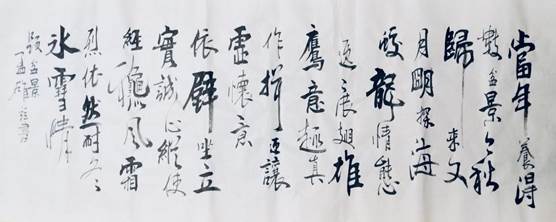 當年養得
數盆景今秋
歸來又
月明探海
蛟龍情態
展翅雄
鷹意趣真
作揖迎讓
虛懷意
依壁坐立
實誠心縱使
經風霜
烈依然耐冬
冰雪情
題盆景